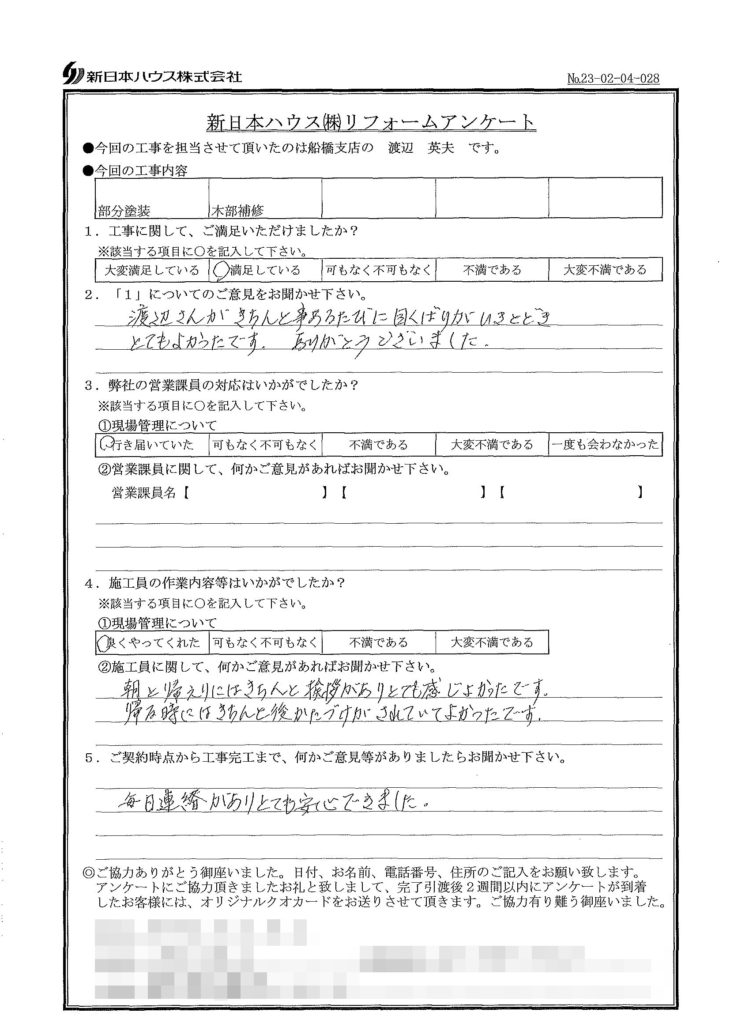 新日本ハウス株式会社
No.23-02-04-028
新日本ハウス㈱リフォームアンケート
●今回の工事を担当させて頂いたのは船橋支店の 渡辺 英夫 です。
●今回の工事内容
部分塗装 木部補修
1．工事に関して、ご満足いただけましたか？
※該当する項目に○を記入して下さい。
大変満足している 満足している 可もなく不可もなく 不満である 大変不満である
2．「1」についてのご意見をお聞かせ下さい。
渡辺さんがきちんと事あるたびに目くばりがいきとどき
とてもよかったです。 ありがとうございました。
3．弊社の営業課員の対応はいかがでしたか？
※該当する項目に○を記入して下さい。
①現場管理について
行き届いていた 可もなく不可もなく 不満である 大変不満である 一度も会わなかった
②営業課員に関して、何かご意見があればお聞かせ下さい。
営業課員名【 】【 】【 】
4．施工員の作業内容等はいかがでしたか？
※該当する項目に○を記入して下さい。
①現場管理について
良くやってくれた 可もなく不可もなく 不満である 大変不満である
②施工員に関して、何かご意見があればお聞かせ下さい。
朝と帰えりにはきちんと挨拶がありとても感じよかったです。
帰る時にはきちんと後かたづけがされていてよかったです。
5．ご契約時点から工事完工まで、何かご意見等がありましたらお聞かせ下さい。
毎日連絡がありとても安心できました。
◎ご協力ありがとう御座いました。日付、お名前、電話番号、住所のご記入をお願い致します。
アンケートにご協力頂きましたお礼と致しまして、完了引渡後2週間以内にアンケートが到着
したお客様には、オリジナルクオカードをお送りさせて頂きます。ご協力有り難う御座いました。